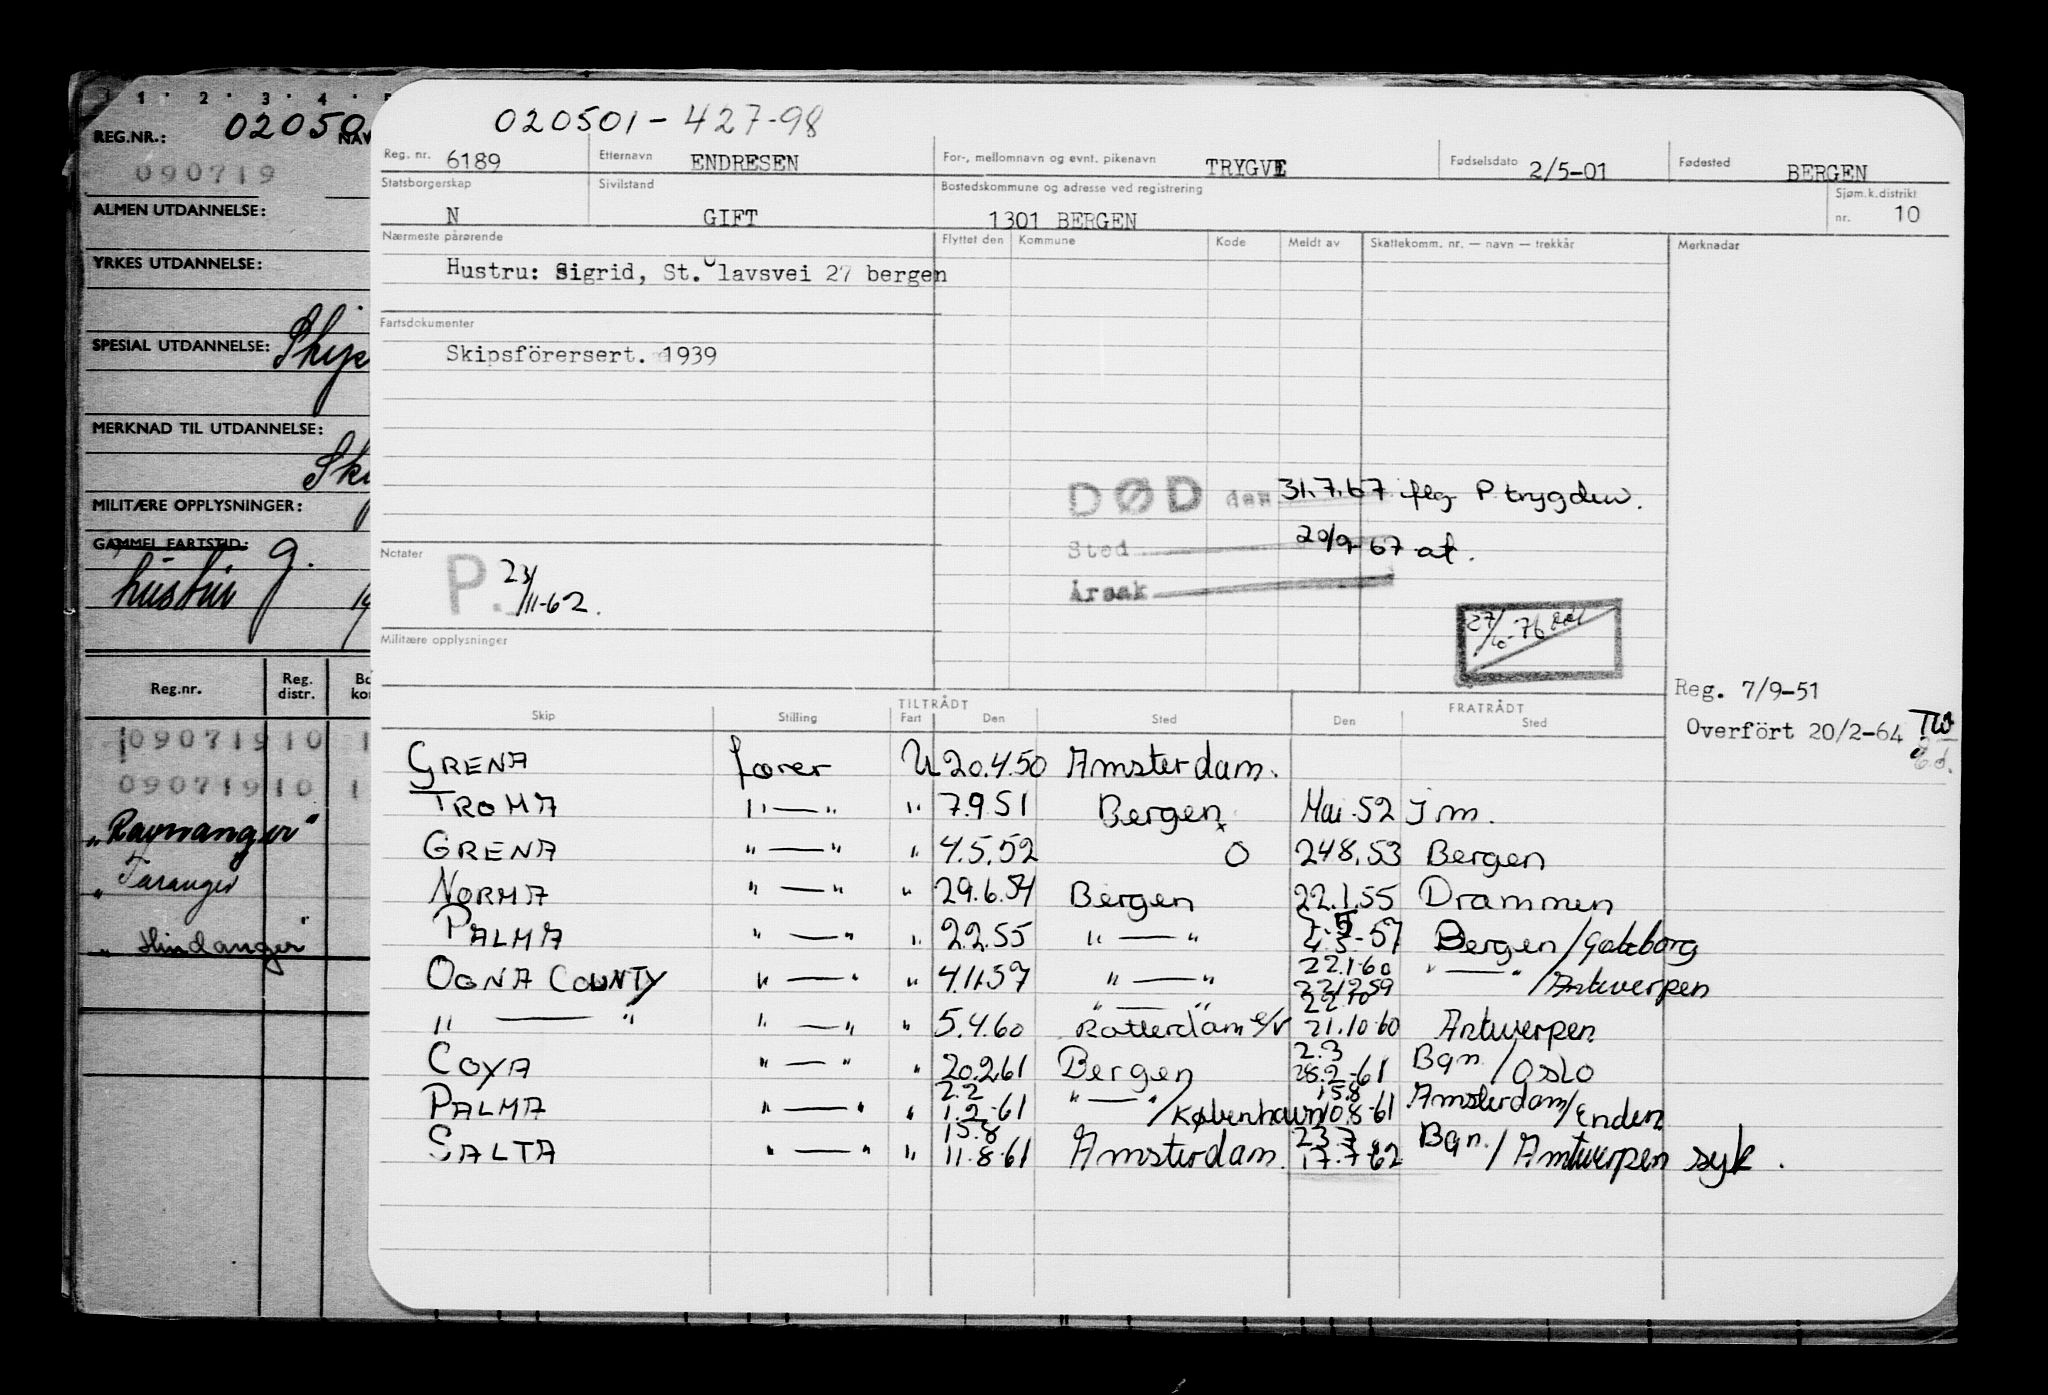 1 · 2 · 3 · 4 ·
REG.NR.: 02050 NAV
090719
ALMEN UTDANNELSE:
YRKES UTDANNELSE:
SPESIAL UTDANNELSE: Skip
MERKNAD TIL UTDANNELSE:
Sk
MILITÆRE OPPLYSNINGER:
GAMMEL FARTSTID:
hustru g. 19
Reg.nr. Reg. distr. Bo kom
09071910 1
09071910 1
"Ravnanger"
" Taranger "
" Hindanger
020501-427-98
Reg. nr. 6189 Etternavn ENDRESEN For-, mellomnavn og evnt. pikenavn TRYGVE Fødselsdato 2/5-01 Fødested BERGEN
Statsborgerskap N Sivilstand GIFT Bostedskommune og adresse ved registrering 1301 BERGEN Sjøm.k.distrikt nr. 10
Nærmeste pårørende Flyttet den Kommune Kode Meldt av Skattekomm. nr. — navn — trekkår Merknadar
Hustru: Sigrid, St. Olavsvei 27 bergen
Fartsdokumenter
Skipsförersert. 1939
DØD den 31.7.67 flg P trygden.
Sted 20/9-67 at.
Årsak
Notater
P. 23/11-62.
27/10-76
Militære opplysninger
Reg. 7/9-51
Overfört 20/2-64 TW
TILTRÅDT FRATRÅDT
Skip Stilling Fart Den Sted Den Sted
GRENA fører U 20.4.50 Amsterdam.
TROMA " — " " 7.9.51 Bergen x Mai 52 I m.
GRENA " — " " 4.5.52 O 24.8.53 Bergen
NORMA " — " " 29.6.54 Bergen 22.1.55 Drammen
PALMA " — " " 2.2.55 " — " 4.5-57 Bergen/Gøteborg
OGNA COUNTY " — " " 4.11.57 " — " 22.1.60 22.12.59 " — " /Antwerpen
" — " " — " " 5.4.60 " — " Rotterdam e/v 22.10 21.10.60 Antwerpen
COYA " — " " 20.2.61 Bergen 2.3 28.2-61 Bgn./Oslo
PALMA " — " " 2.2 1.2-61 " — " /København 15.8 10.8-61 Amsterdam/Enden
SALTA " — " " 15.8 11.8.61 Amsterdam. 23.7 17.7-62 Bgn./Antwerpen syk.